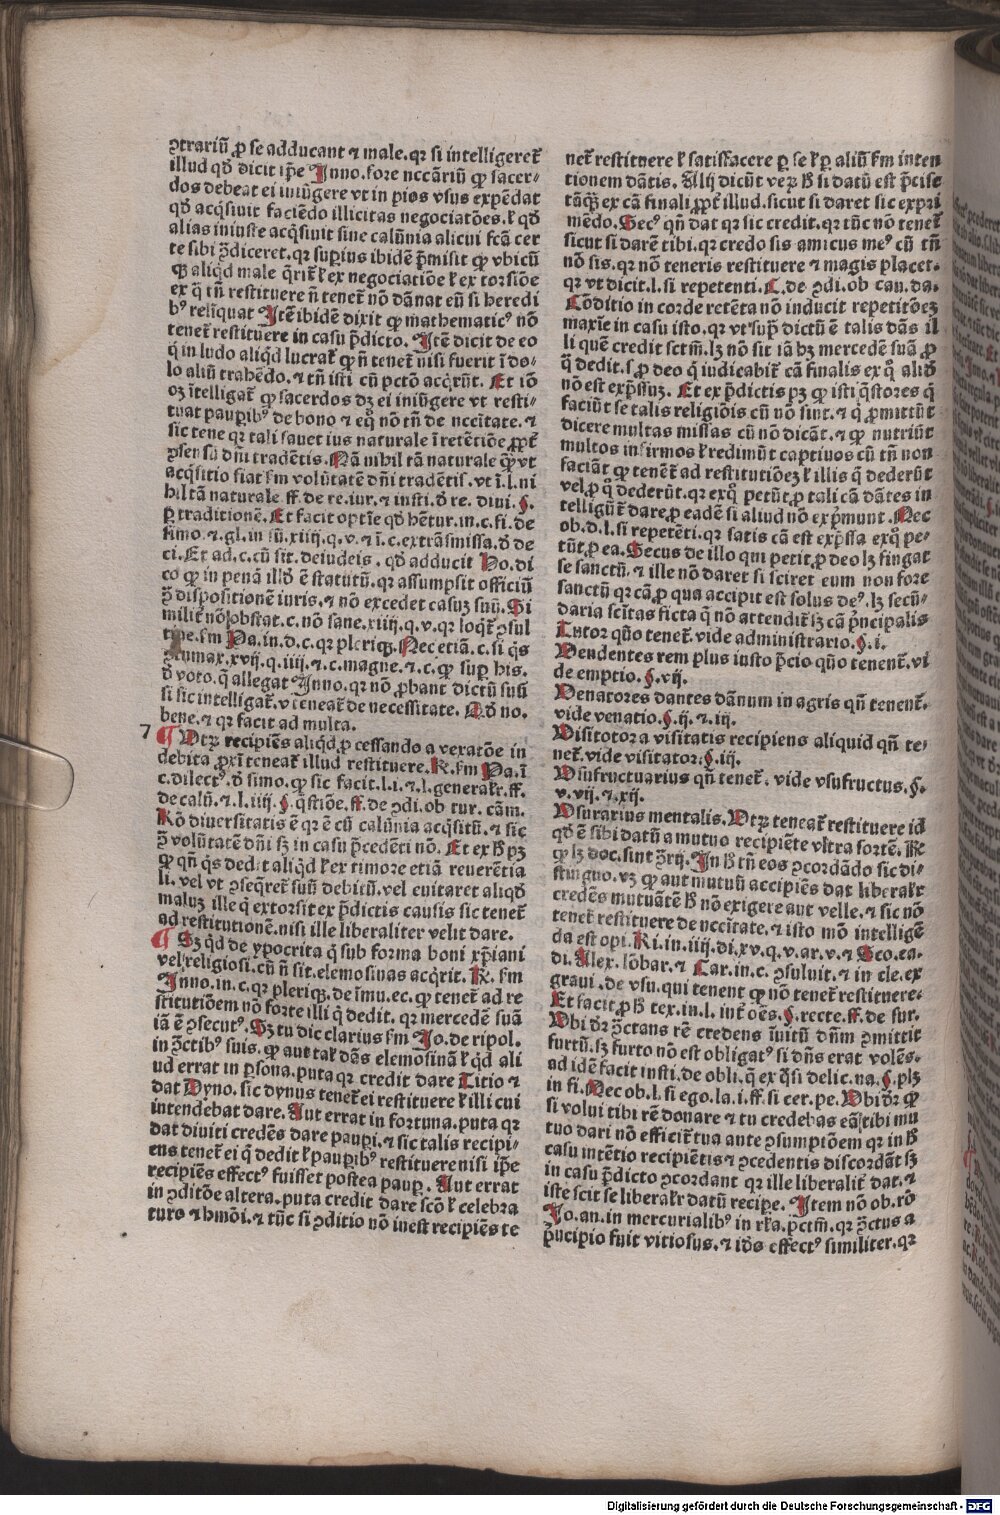 ꝯtrariū ꝓ se adducant ⁊ male. qꝛ si intelligeret᷑
illud qđ dicit ip̄e Inno. fore nccāriū ꝙ sacer-
dos debeat ei iniūgere vt in pios vsus expēdat
qđ acq̄siuit faciēdo illicitas negociatōes. ł qđ
alias iniuste acq̄siuit sine calūnia alicui fc̄a cer
te sibi ꝯ̄diceret. qꝛ superius ibidē p̄misit ꝙ vbicū
qꝫ aliqd male q̄rit᷑ ł ex negociatiōe ł ex torsiōe
ex q̄ tn̄ restituere n̄ tenet᷑ nō dānat eū si heredi
bꝰ reliquat Itē ibidē dixit ꝙ mathematicꝰ nō
tenet᷑ restituere in casu p̄dicto. Itē dicit de eo
q̄ in ludo aliqd lucrat᷑ ꝙ n̄ tenet᷑ nisi fuerit ī do-
lo aliū trahēdo. ⁊ tn̄ isti cū pctō acq̄rūt. Et iō
oꝫ ītelligat᷑ ꝙ sacerdos dꝫ ei iniūgere vt resti-
tuat pauꝑibꝰ de bono ⁊ eq̊ nō tn̄ de nccītate. ⁊
sic tene qꝛ tali fauet ius naturale ī retētiōe ꝓpt᷑
ꝯsensū dn̄i tradētis. Nā nihil tā naturale q̄ꝫ vt
acq̄sitio fiat ẜm volūtatē dn̄i tradētis. vt ī. l. ni
hil tā naturale ff. de re. iur. ⁊ insti. đ re. diui. §.
ꝑ traditionē. Et facit optīe qđ hētur. in. c. fi. de
simo. ⁊ gl. in sū. xiiij. q. v. ⁊ ī c. extrāsmissa. đ de
ci. Et ad. c. cū sit. de iudeis. qđ adducit Ho. di
co ꝙ in penā illđ ē statutū. qꝛ assumpsit officiū
ꝯ̄ dispositionē iuris. ⁊ nō excedet casuꝫ suū. Si
milit᷑ nō obstat. c. nō sane. xiiij. q. v. qꝛ loq̄t᷑ ꝯsul
tiue. ẜm Pa. in. d. c. qꝛ pleriqꝫ. Nec etiā. c. si q̄s
ꝯfumax. xvij. q. iiij. ⁊. c. magne. ⁊. c. ꝙ suꝑ his.
đ voto. q̄ allegat Inno. qꝛ nō ꝓbant dictū suū
si sic intelligat᷑. vt teneat᷑ de necessitate. Ad no.
bene. ⁊ qꝛ facit ad multa.
7 ¶ Utꝝ recipiēs aliqđ ꝓ cessando a vexatōe in
debita ꝓxī teneat᷑ illud restituere. R. ẜm Pa. ī
c. dilectꝰ. đ simo. ꝙ sic facit. l. i. ⁊. l. generalr. ff.
de calū. ⁊. l. iiij. §. q̄stiōe. ff. de ꝯdi. ob tur. cām.
Rō diuersitatis ē qꝛ ē cū calūnia acq̄sitū. ⁊ sic
ꝯ̄ volūtatē dn̄i sꝫ in casu p̄cedēti nō. Et ex ꝧ pꝫ
ꝙ qn̄ q̄s dedit aliqđ ł ex timore etiā reuerētia
li. vel vt ꝯseq̄ret᷑ suū debitū. vel euitaret aliqđ
maluꝫ ille q̄ extorsit ex p̄dictis causis sic tenet᷑
ad restitutionē. nisi ille liberaliter velit dare.
¶ Sꝫ qđ de ypocrita q̄ sub forma boni xp̄iani
vel religiosi. cū n̄ sit. elemosinas acq̄rit. R. ẜm
Inno. in. c. qꝛ pleriqꝫ. de īmu. ec. ꝙ tenet᷑ ad re
stitutiōem nō forte illi q̄ dedit. qꝛ mercedē suā
iā ē ꝯsecutꝰ. Sꝫ tu dic clarius ẜm Jo. de ripol.
in ꝯ̄ctibꝰ suis. ꝙ aut tal᷑ dās elemosinā ł qđ ali
ud errat in ꝑsona. puta qꝛ credit dare Titio ⁊
dat Dyno. sic dynus tenet᷑ ei restituere ł illi cui
intendebat dare. Aut errat in fortuna. puta qꝛ
dat diuiti credēs dare pauꝑi. ⁊ sic talis recipi-
ens tenet᷑ ei q̄ dedit ł pauꝑibꝰ restituere nisi ip̄e
recipiēs effectꝰ fuisset postea pauꝑ. Aut errat
in ꝯditōe altera. puta credit dare scō ł celebra
turo ⁊ hmōi. ⁊ tūc si ꝯditio nō inest recipiēs te
net᷑ restituere ł satisfacere ꝑ se ł ꝑ aliū ẜm inten
tionem dātis. Alij dicūt veꝝ ꝧ si datū est p̄cise
tāqꝫ ex cā finali ꝓpt᷑ illud. sicut si daret sic expri
mēdo. Secꝰ qn̄ dat qꝛ sic credit. qꝛ tūc nō tenet᷑
sicut si darē tibi. qꝛ credo sis amicus meꝰ cū tn̄
nō sis. qꝛ nō teneris restituere ⁊ magis placet.
qꝛ vt dicit. l. si repetenti. C. de ꝯdi. ob cau. da.
Cōditio in corde retēta nō inducit repetitōeꝫ
maxīe in casu isto. qꝛ vt sup̄ dictū ē talis dās il
li quē credit sctm̄. lꝫ nō sit iā hꝫ mercedē suā ꝓ
q̄ dedit. s. ꝓ deo q̄ iudicabit᷑ cā finalis ex q̄ aliđ
nō est exp̄ssuꝫ. Et ex p̄dictis pꝫ ꝙ isti q̄stores q̄
faciūt se talis religiōis cū nō sint. ⁊ q̄ ꝓmittūt
dicere multas missas cū nō dicāt. ⁊ ꝙ nutriūt
multos infirmos ł redimūt captiuos cū tn̄ non
faciāt ꝙ tenet᷑ ad restitutiōeꝫ ł illis q̄ dederūt
vel ꝓ q̊ dederūt. qꝛ exq̊ petūt ꝓ tali cā dātes in
telligūt᷑ dare ꝓ eadē si aliud nō exp̄munt. Nec
ob. d. l. si repetēti. qꝛ satis cā est exp̄ssa exq̊ pe-
tūt ꝓ ea. Secus de illo qui petit ꝓ deo lꝫ fingat
se sanctū. ⁊ ille nō daret si sciret eum non fore
sanctū qꝛ cā ꝓ qua accipit est solus deꝰ. lꝫ secū-
daria scītas ficta q̄ nō attendit᷑ lꝫ cā p̄ncipalis
Tutor qn̄o tenet᷑. vide administratio. §. i.
Vendentes rem plus iusto p̄cio qn̄o tenent᷑. vi
de emptio. §. vij.
Venatores dantes dānum in agris qn̄ tenent᷑.
vide venatio. §. ij. ⁊. iij.
Visitator a visitatis recipiens aliquid qn̄ te-
net᷑. vide visitator. §. iij.
Vsufructuarius qn̄ tenet᷑. vide vsufructus. §.
v. vij. ⁊. xij.
Vsurarius mentalis. Utꝝ teneat᷑ restituere id
qđ ē sibi datū a mutuo recipiēte vltra sortē. R
ꝙ lꝫ doc. sint ꝯ̄rij. In ꝧ tn̄ eos ꝯcordādo sic di-
stinguo. vꝫ ꝙ aut mutuū accipiēs dat liberalr
credēs mutuātē ꝧ nō exigere aut velle. ⁊ sic nō
tenet᷑ restituere de nccītate. ⁊ isto mō intelligē
da est opi. Ri. in. iiij. di. xv. q. v. ar. v. ⁊ Sco. ea.
di. Alex. lōbar. ⁊ Car. in. c. ꝯsuluit. ⁊ in cle. ex
graui. de vsu. qui tenent ꝙ nō tenet᷑ restituere.
Et facit ꝓ ꝧ tex. in. l. int᷑ oēs. §. recte. ff. de fur.
Vbi dr̄ ꝯ̄ctans rē credens īuitū dn̄m ꝯmittit
furtū. sꝫ furto nō est obligatꝰ si dn̄s erat volēs.
ad idē facit insti. de obli. q̄ ex q̄si delic. na. §. plꝫ
in fi. Nec ob. l. si ego. la. i. ff. si cer. pe. Vbi dr̄ ꝙ
si volui tibi rē donare ⁊ tu credebas eā tibi mu
tuo dari nō efficit᷑ tua ante ꝯsumptiōem qꝛ in ꝧ
casu intētio recipiētis ⁊ ꝯcedentis discordāt sꝫ
in casu p̄dicto ꝯcordant qꝛ ille liberalit᷑ dat. ⁊
iste scit se liberalr datū recipe. Item nō ob. rō
Jo. an. in mercurialibꝰ in rła. p̄ctm̄. qꝛ ꝯ̄ctus a
p̄ncipio fuit vitiosus. ⁊ iđo effectꝰ similiter. qꝛ
Digitalisierung gefördert durch die Deutsche Forschungsgemeinschaft - DFG